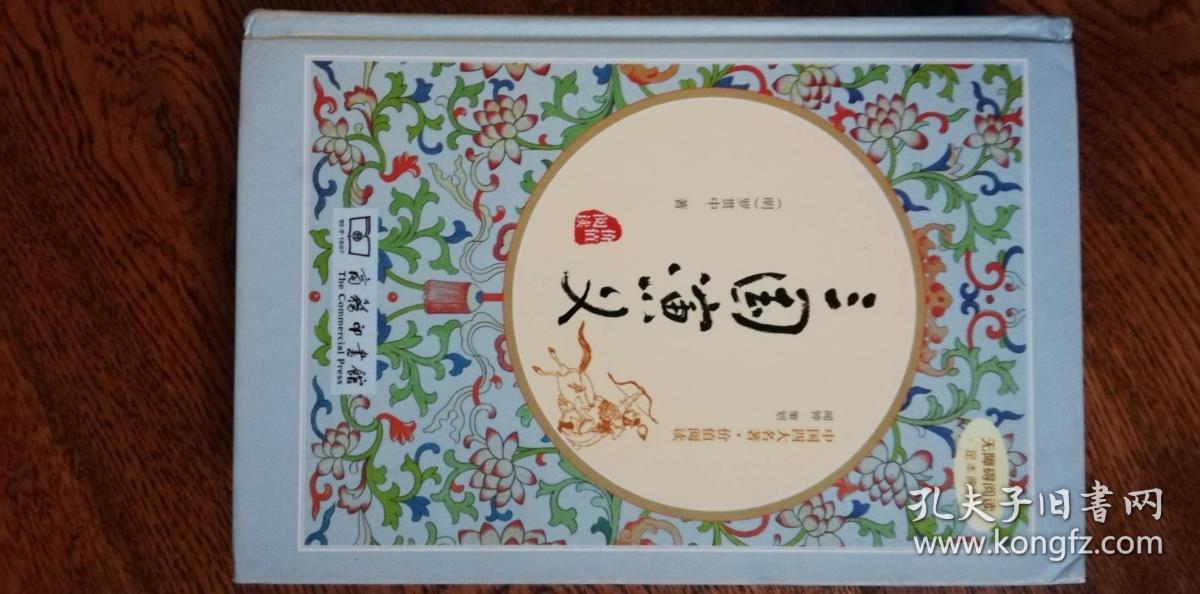 无障碍阅读
·足本
中国四大名著·价值阅读
闻钟 策划
三国演义
(明)罗贯中 著
价值
阅读
创于1897
商务印书馆
The Commercial Press
孔夫子旧书网
www.kongfz.com